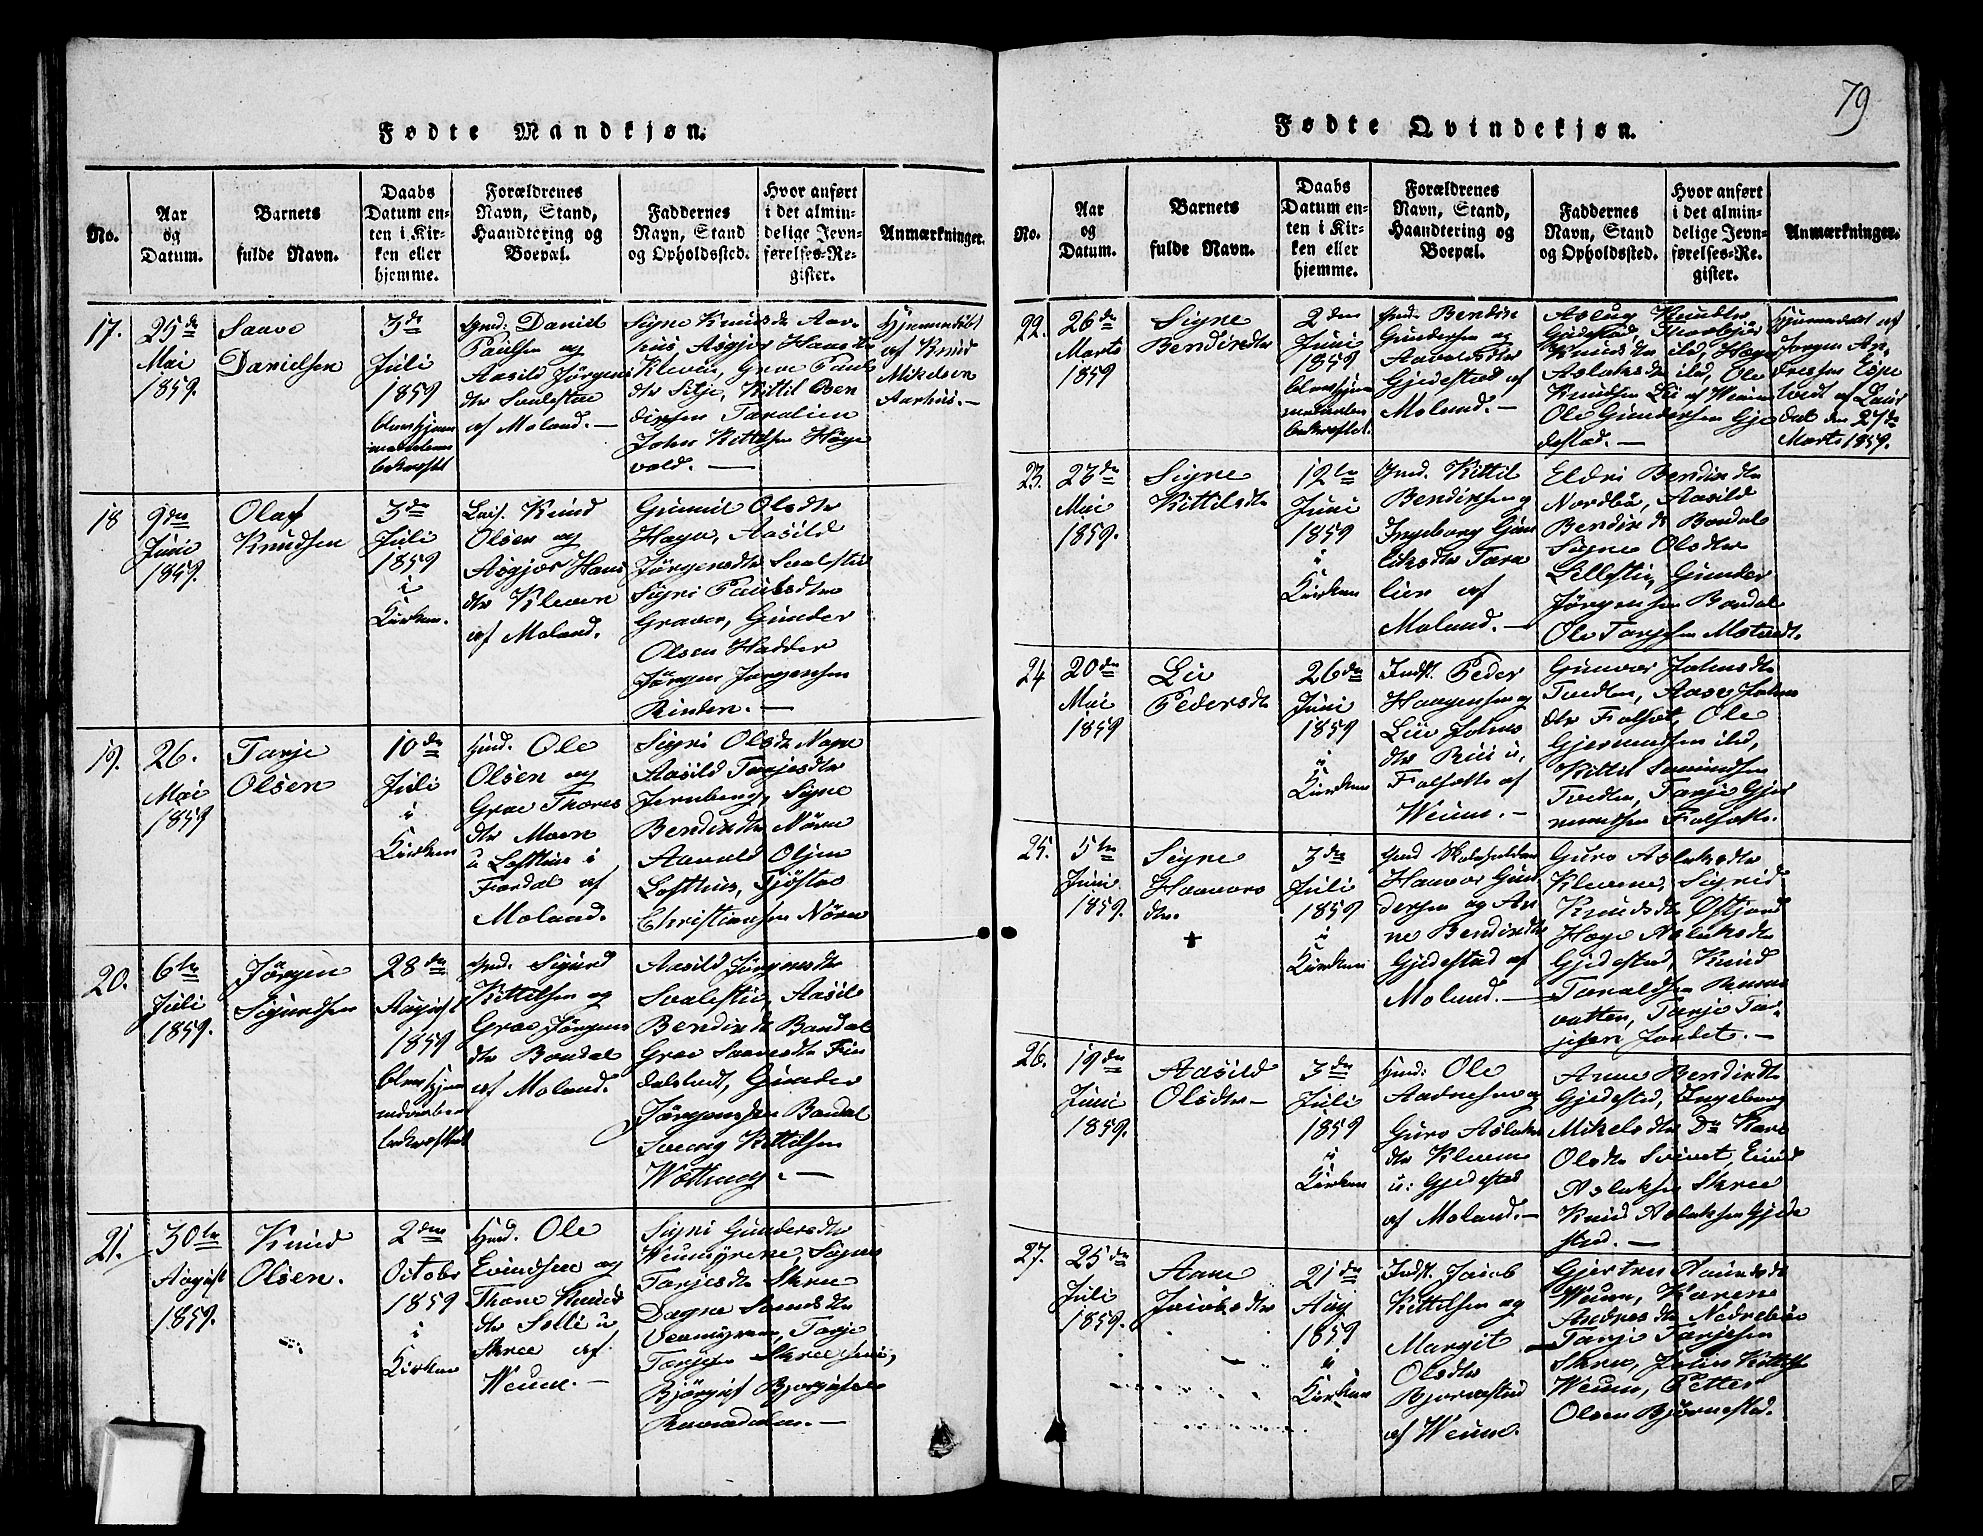 79
Fødte Mandkjøn.
No.
Aar
og
Datum.
Barnets
fulde Navn.
Daabs
Datum en-
ten i Kir-
ken eller
hjemme.
Forældrenes
Navn, Stand,
Haandtering og
Boepæl.
Faddernes
Navn, Stand
og Opholdssted.
Hvor anført
i det almin-
delige Jevn-
førelses-Re-
gister.
Anmærkninger.
17.
25de
Mai
1859.
Saave
Danielsen
3de
Juli
1859
blev hjem
medaaben
bekræftet
Gmd. Daniel
Paulsen og
Aasild Jörgens
dtr Svalestøe
af Moland. —
Signe Knudsdtr Aar-
hus, Asgjør Haansdtr
Kleven, Groe Pauls
dtr Silje, Kittil Ben
dixsen Taralien
John Kittilsen Høge
vold. —
Hjemmedöbt
af Knud
Mikelsen
Aarhus. —
18
9de
Juni
1859.
Olaf
Knudsen
3de
Juli
1859
i
Kirken.
Leis. Knud
Olsen og
Asgjør Hans
dtr Kleven
af Moland.
Gunnil Olsdtr
Haga, Aasild
Jörgensdtr Svalestø
Signi Paulsdtr
Graver, Gunder
Olsen Hadder
Jörgen Jörgensen
Rinden. —
19.
26.
Mai
1859
Tarje
Olsen
10de
Juli
i
Kirken
Hmd. Ole
Olsen og
Groe Thores
dtr Moen
u Lofthus i
Fardal af
Moland.
Signi Olsdtr Nape
Aasild Tarjesdtr
Jernberg, Signe
Bendixdtr Nörve
Aavold Olsen
Lofthus, Tjöstov
Christiansen Nörve
20.
6te
Juli
1859.
Jörgen
Sigurdsen
28de
August
1859
blev hjem
medaaben
bekræftet
Gmd. Sigurd
Kittilsen og
Groe Jörgens
dtr Bondal
af Moland.
Aasild Jörgensdtr
Svalestø, Aasild
Bendixdtr Bondal
Groe Saavesdtr Fin
dalstadt, Gunder
Jörgensen Bondal
Kittilsen
21.
30te
August
1859.
Knud
Olsen.
2den
Octobr
1859
i
Kirken
Hmd. Ole
Evindsen og
Thone Knuds
dtr Selli u
Skree af
Weum. —
Signi Gundersdtr
Weumyrene, Signe
Tarjesdtr Skree
Dagne
Veumyrene, Tarje
Tarjesen Skree
Björgulf Bjorgulfsen
Ramsdalen. —
Fødte Qvindekjøn.
No.
Aar
og
Datum.
Barnets
fulde Navn.
Daabs
Datum en-
ten i Kir-
ken eller
hjemme.
Forældrenes
Navn, Stand,
Haandtering og
Boepæl.
Faddernes
Navn, Stand
og Opholdssted.
Hvor anført
i det almin-
delige Jevn-
førelses-Re-
gister.
Anmærkninger.
22.
26de
Marts
1859
Signe
Bendixdtr
2den
Juni
1859
blev hjem
medaaben
bekræftet.
Gmd. Bendix
Gundersen og
Aavoldsdtr
Gjedestad af
Moland. —
Aslaug Knudsdtr
Gjedestad, Thorbjør
Knudsdtr ibd, Hæge
Aslaksdtr ibd, Ole
Knudsen Lii af Weum
Ole Gundersen Gje
destad. —
Hjemmedöbt af
Jørgen An-
dresen Espe
tvedt af Laur
dal den 27de
Marts 1859.
23.
23de
Mai
1859.
Signe
Kittilsdtr
12te
Juni
1859
i
Kirken
Gmd. Kittil
Bendixsen og
Ingeborg Gun
leiksdtr Tara
lien af
Moland. —
Eldri Bendixdtr
Nordbø, Aasild
Bendixdtr Bondal
Signe Olsdtr
Lillestø, Gunder
Jörgensen Bondal
Ole Tarjesen Motvedt.
24
20de
Mai
1859
Liv
Pedersdtr
26de
Juni
1859
i
Kirken
Indst. Peder
Haagensen og
Liv Johns
dtr Rui u.
Folsøtt af
Weum. —
Gunvor Johnsdtr
Tvedten, Aase Johns
dtr Folsøt, Ole
Gjermundsen ibd,
Kittil Sæmundsen
Tvedten, Tarje Gjer
mundsen Folsøtt.
25.
5te
Juni
1859.
Signe
Haavors
dtr.
+
3de
Juli
1859
i
Kirken
Gmd Skoleholder
Haavor Gun
dersen og An
ne Bendixdtr
Gjedestad af
Moland. —
Guro Aslaksdtr
Klevene, Sigrid
Knudsdtr Østjord
Hæge Aslaksdtr
Gjedestad, Knud
Taraldsen
vatten, Tarje Tar-
jesen Jordet. —
26.
19de
Juni
1859.
Aasild
Olsdtr —
3de
Juli
1859
i
Kirken
Hmd. Ole
Aadnesen og
Guro Aslaks
dtr Klevene
u: Gjedestad
af Moland. —
Anne Bendixdtr
Gjedestad, Ingeborg
Mikelsdtr Do Kare
Olsdtr Svinet, Eivind
Aslaksen Skree
Knud Aslaksen Gjede
stad. —
27.
25de
Juli
1859.
Anne
Jacobsdtr
21de
Aug
1859
i
Kirken
Indst. Jacob
Kittilsen og
Margit
Olsdtr
Bjørnestad
af Weum.
Gjertru Aanunsdtr
Weum, Karen
Andresdtr Nedrebøe
Tarje Tarjesen
Skree, Julius Kittilsen
Weum, Petter
Olsen Bjørnestad.